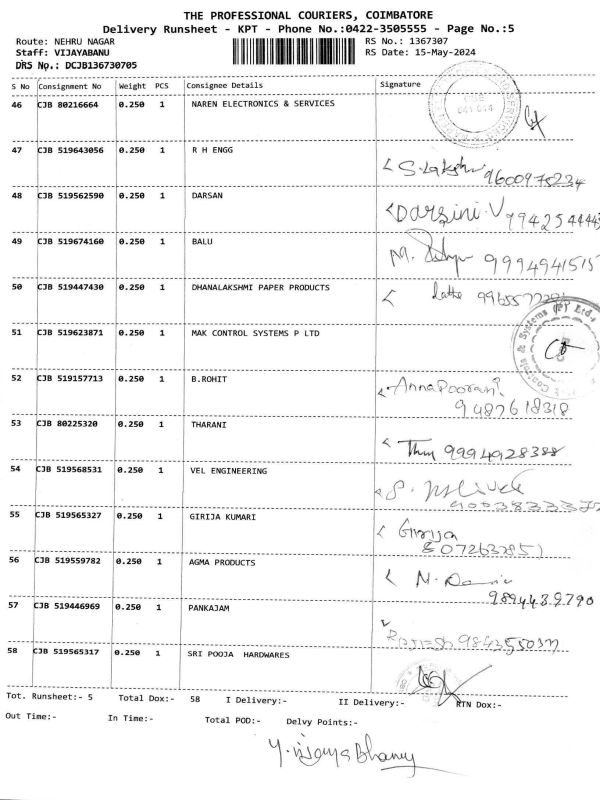 THE PROFESSIONAL COURIERS, COIMBATORE
Delivery Runsheet - KPT - Phone No.:0422-3505555 - Page No.:5
Route: NEHRU NAGAR RS No.: 1367307
Staff: VIJAYABANU RS Date: 15-May-2024
DRS No.: DCJB136730705
S No Consignment No Weight PCS Consignee Details Signature
46 CJB 80216664 0.250 1 NAREN ELECTRONICS & SERVICES
47 CJB 519643056 0.250 1 R H ENGG
S. Lakshmi 9600975234
48 CJB 519562590 0.250 1 DARSAN
Darsini.V 994254444
49 CJB 519674160 0.250 1 BALU
M. 9994941515
50 CJB 519447430 0.250 1 DHANALAKSHMI PAPER PRODUCTS
Latha
51 CJB 519623871 MAK CONTROL SYSTEMS P LTD
Controls & Systems (P) Ltd
52 CJB 519157713 0.250 1 B.ROHIT
Annapoorani
9487618318
53 CJB 80225320 0.250 1 THARANI
9994928388
54 CJB 519568531 0.250 1 VEL ENGINEERING
55 CJB 519565327 0.250 1 GIRIJA KUMARI
Girija
56 CJB 519559782 0.250 1 AGMA PRODUCTS
N.
57 CJB 519446969 0.250 1 PANKAJAM
Rajesh
58 CJB 519565317 0.250 1 SRI POOJA HARDWARES
Tot. Runsheet:- 5 Total Dox:- 58 I Delivery:- II Delivery:- RTN Dox:-
Out Time:- In Time:- Total POD:- Delvy Points:-
Y. Vijaya Bhanu